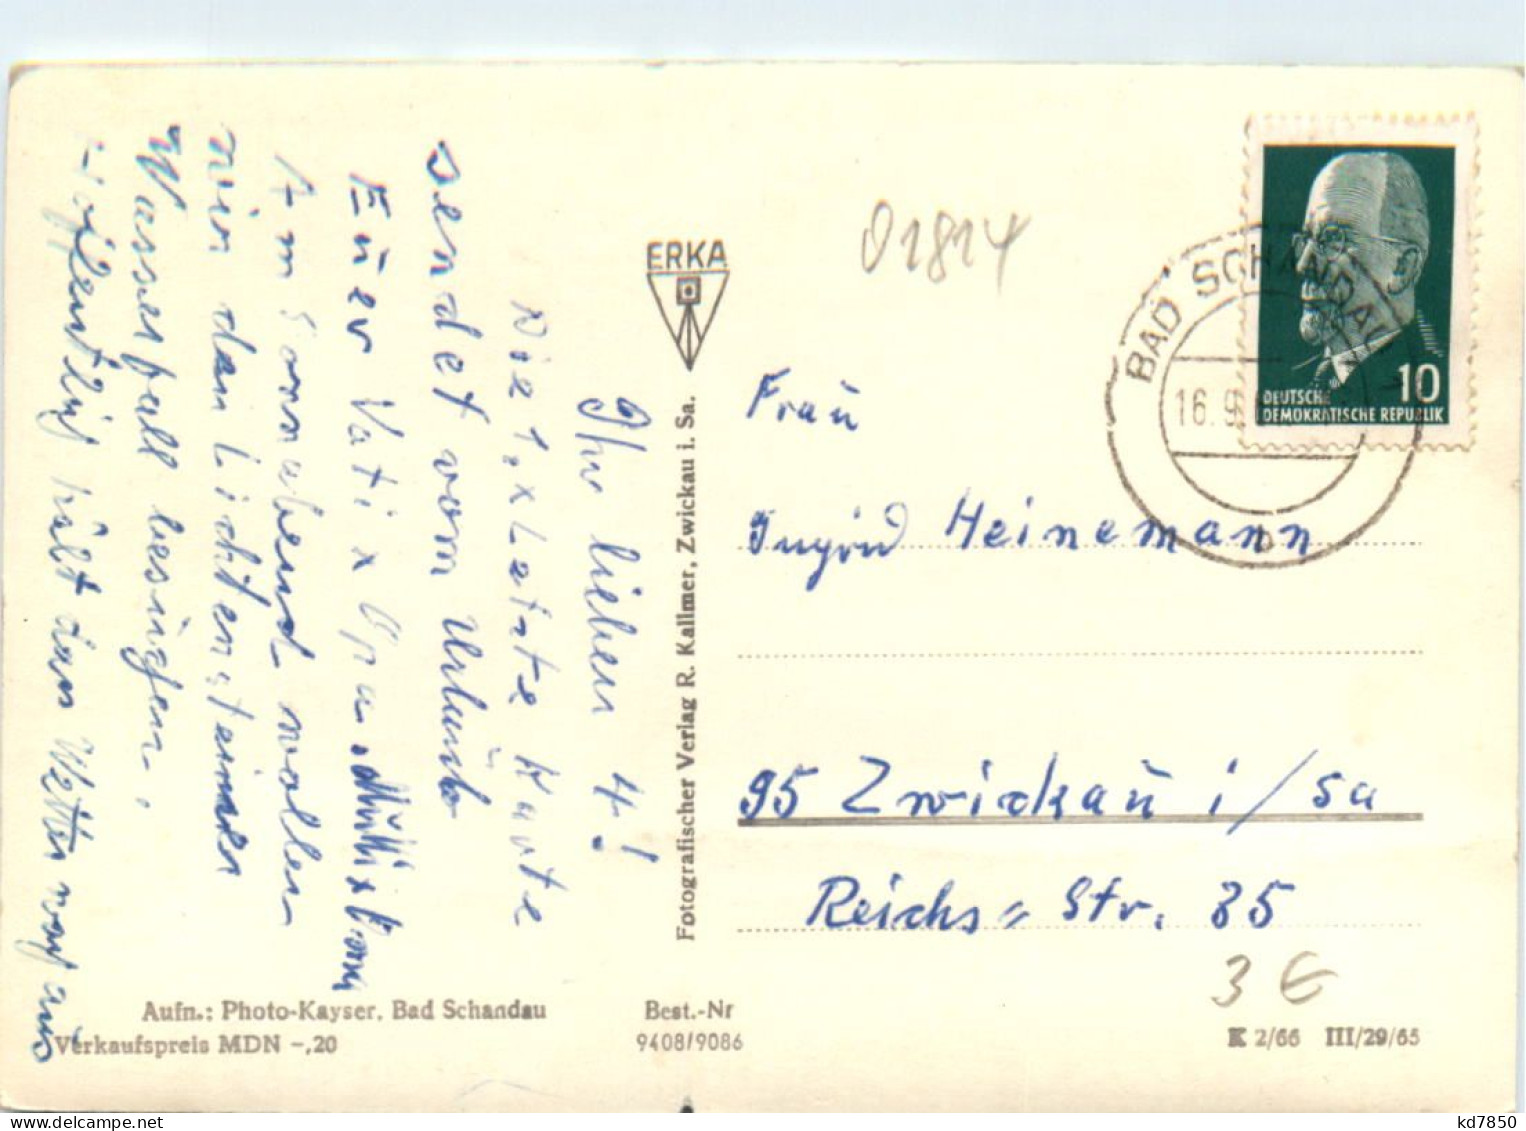 Ihr lieben 4!
Die 1. x Letzte Karte
sendet vom Urlaub
Euer Vati x Opa, Mutti x Oma
Am Sonnabend wollen
wir den Lichtenhainer
Wasserfall besingen.
Hoffentlich hält das Wetter noch aus
ERKA
Fotografischer Verlag R. Kallmer, Zwickau i. Sa.
01814
BAD SCHANDAU
16.9.
b
10
DEUTSCHE
DEMOKRATISCHE REPUBLIK
Frau
Ingrid Heinemann
95 Zwickau i/Sa
Reichs= Str. 35
3 €
Aufn.: Photo-Kayser, Bad Schandau
Verkaufspreis MDN -,20
Best.-Nr
9408/9086
K 2/66 III/29/65
kd7850